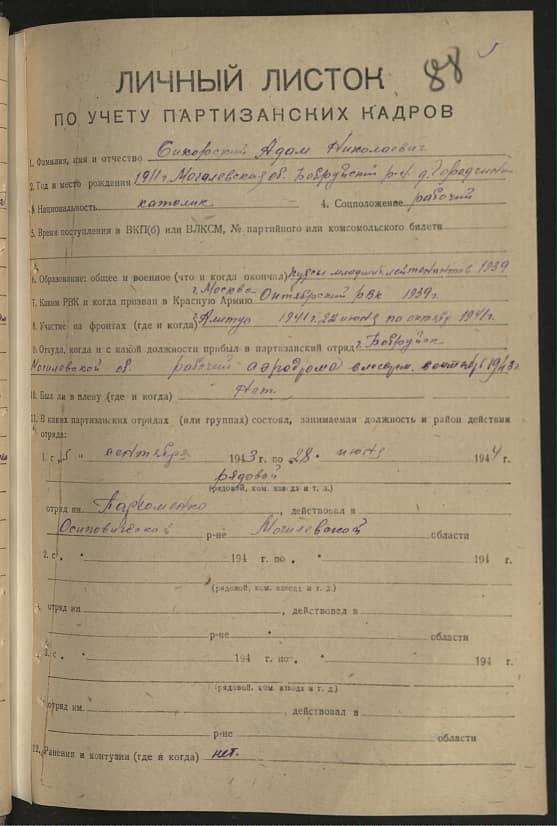 88
ЛИЧНЫЙ ЛИСТОК
ПО УЧЕТУ ПАРТИЗАНСКИХ КАДРОВ
1. Фамилия, имя и отчество Сикорский Адам Николаевич
2. Год и место рождения 1911 г Могилевская об. Бобруйский р-н. д.
3. Национальность католик 4. Соцположение рабочий
5. Время поступления в ВКП(б) или ВЛКСМ, № партийного или комсомольского билета
6. Образование: общее и военное (что и когда окончил) курсы младших лейтенантов 1939
г. Москва
7. Каким РВК и когда призван в Красную Армию Октябрский рвк 1939 г.
8. Участие на фронтах (где и когда) г. Алитус 1941 г. 22 июня по октябр 1941 г.
9. Откуда, когда и с какой должности прибыл в партизанский отряд г. Бобруйск
Могилевской об. рабочий аэродрома 1943 г.
10. Был ли в плену (где и когда) Нет.
11. В каких партизанских отрядах (или группах) состоял, занимаемая должность и район действия
отряда:
1. с „5 " сентября 1943 г. по „28 " июня 1944 г.
рядовой
(рядовой, ком. взвода и т. д.)
отряд им. Пархоменко, действовал в
Осиповической р-не Могилевской области
2. с „ " 194 г. по „ " 194 г.
(рядовой, ком. взвода и т. д.)
отряд им , действовал в
р-не области
3. с „ " 194 г. по „ " 194 г.
(рядовой, ком. взвода и т. д.)
отряд им. , действовал в
р-не области
12. Ранения и контузии (где и когда) нет.